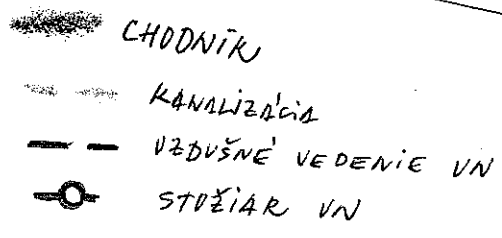 CHODNÍK
KANALIZÁCIA
VZDUŠNÉ VEDENIE VN
STOŽIAR VN